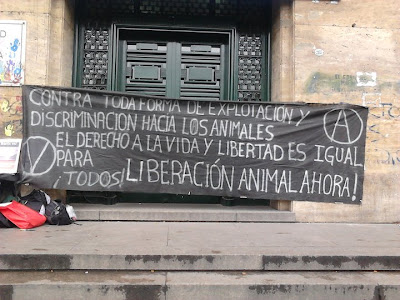 CONTRA TODA FORMA DE EXPLOTACIÓN Y
DISCRIMINACION HACIA LOS ANIMALES
EL DERECHO A LA VIDA Y LIBERTAD ES IGUAL
PARA
¡TODOS! LIBERACIÓN ANIMAL AHORA!